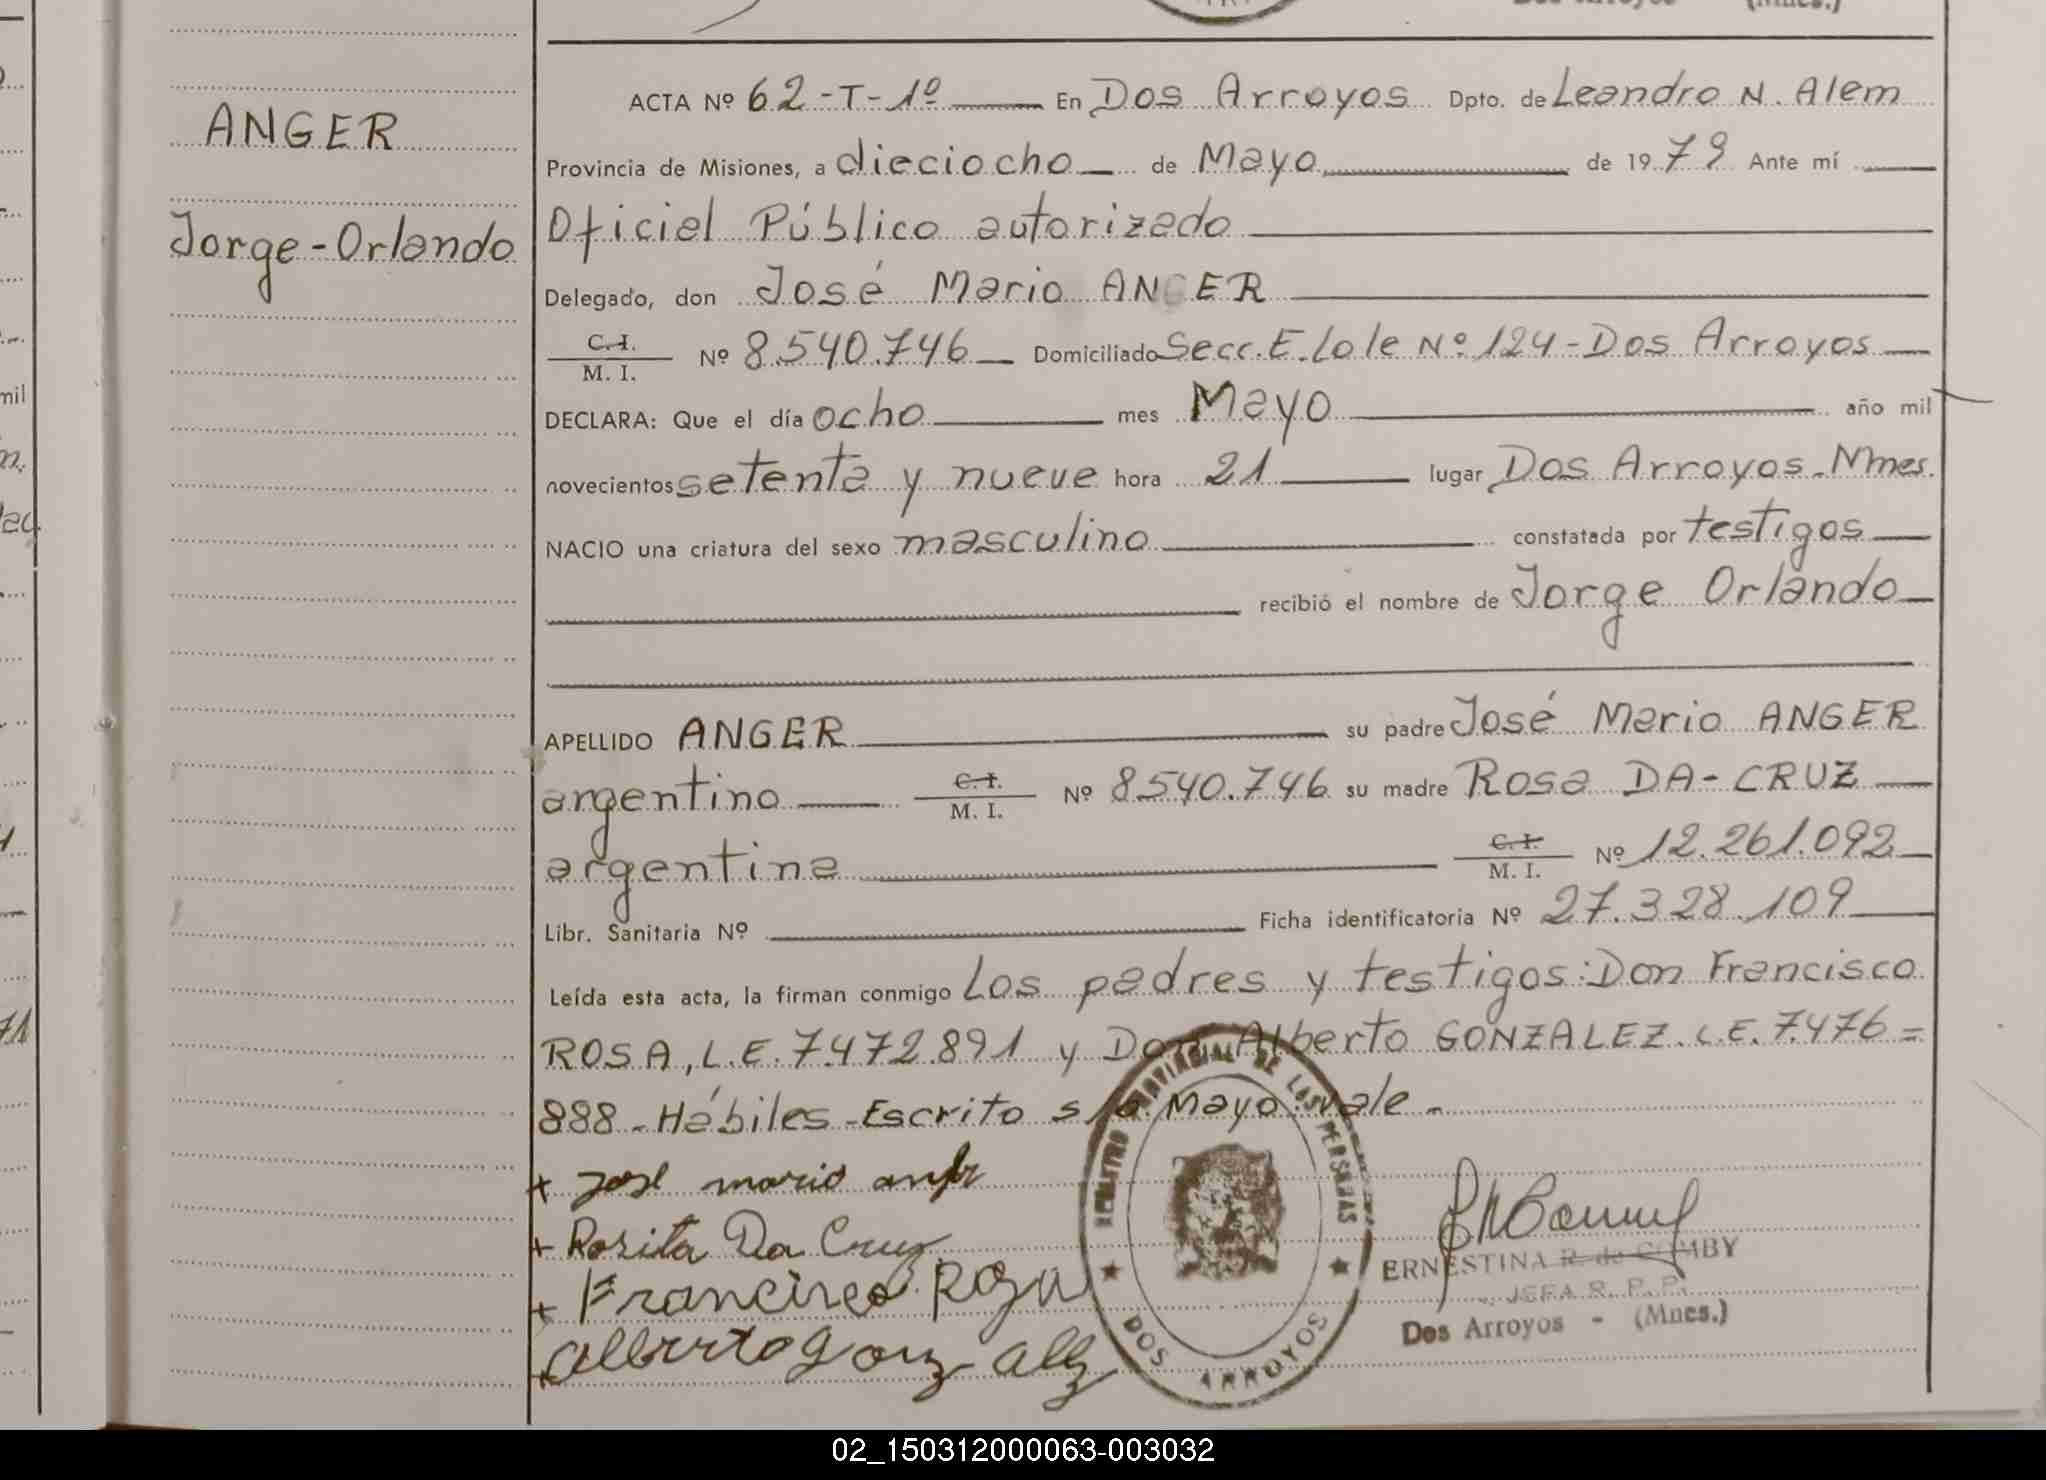 Dos Arroyos (Mnes.)
ANGER
Jorge-Orlando
ACTA Nº 62-T-1º En Dos Arroyos Dpto. de Leandro N. Alem
Provincia de Misiones, a dieciocho de Mayo de 1979 Ante mí
Oficial Público autorizado
Delegado, don José Mario ANGER
C.I.
M. I. Nº 8.540.746 Domiciliado Secc. E. Lote Nº 124-Dos Arroyos
DECLARA: Que el día ocho mes Mayo año mil
novecientos setenta y nueve hora 21 lugar Dos Arroyos-Mnes.
NACIO una criatura del sexo masculino constatada por testigos
recibió el nombre de Jorge Orlando
APELLIDO ANGER su padre José Mario ANGER
argentino C.I. M. I. Nº 8.540.746 su madre Rosa DA-CRUZ
argentina C.I. M. I. Nº 12.261.092
Libr. Sanitaria Nº Ficha identificatoria Nº 27.328.109
Leída esta acta, la firman conmigo Los padres y testigos: Don Francisco
ROSA, L.E. 7.472.891 y Don Alberto GONZALEZ. L.E. 7.476=
888-Hábiles-Escrito s/o Mayo: vale-
+ José mario
+ Rosita Da Cruz
+ Francisco Roza
+ Alberto Gonzalez
REGISTRO PROVINCIAL DE LAS PERSONAS
DOS ARROYOS
ERNESTINA R. de COMBY
JEFA R. P. P.
Dos Arroyos - (Mnes.)
02_150312000063-003032